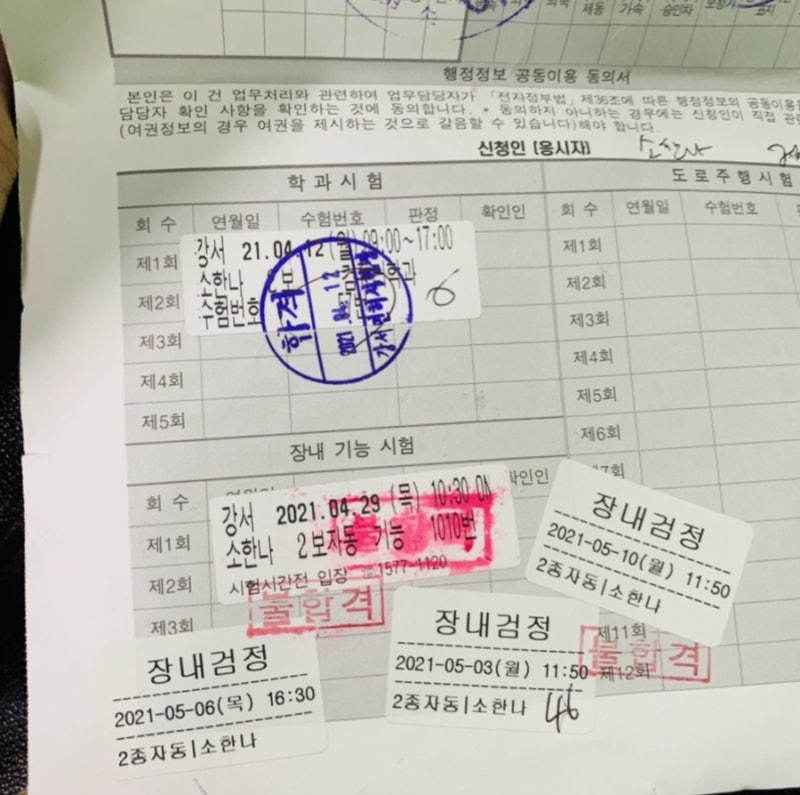 제동
가속
승인자
행정정보 공동이용 동의서
본인은 이 건 업무처리와 관련하여 업무담당자가 「전자정부법」 제36조에 따른 행정정보의 공동이용을
담당자 확인 사항을 확인하는 것에 동의합니다. * 동의하지 아니하는 경우에는 신청인이 직접 관련
(여권정보의 경우 여권을 제시하는 것으로 갈음할 수 있습니다)해야 합니다.
신청인 (응시자) 소한나
학과시험
회 수 연월일 수험번호 판정 확인인
제1회
제2회
제3회
제4회
제5회
강서 21.04.12 (월) 09:00~17:00
소한나 학과
수험번호
6
합격
2021.04.12
강서면허시험장
도로주행시험
회 수 연월일 수험번호
제1회
제2회
제3회
제4회
제5회
제6회
제7회
장내 기능 시험
회 수 연월일 확인인
제1회
제2회
제3회
강서 2021.04.29 (목) 10:30
소한나 2보자동 기능 1010번
시험시간전 입장 ☎1577-1120
불합격
장내검정
2021-05-10(월) 11:50
2종자동|소한나
장내검정
2021-05-03(월) 11:50
2종자동|소한나 46
제11회
제12회
불합격
장내검정
2021-05-06(목) 16:30
2종자동|소한나